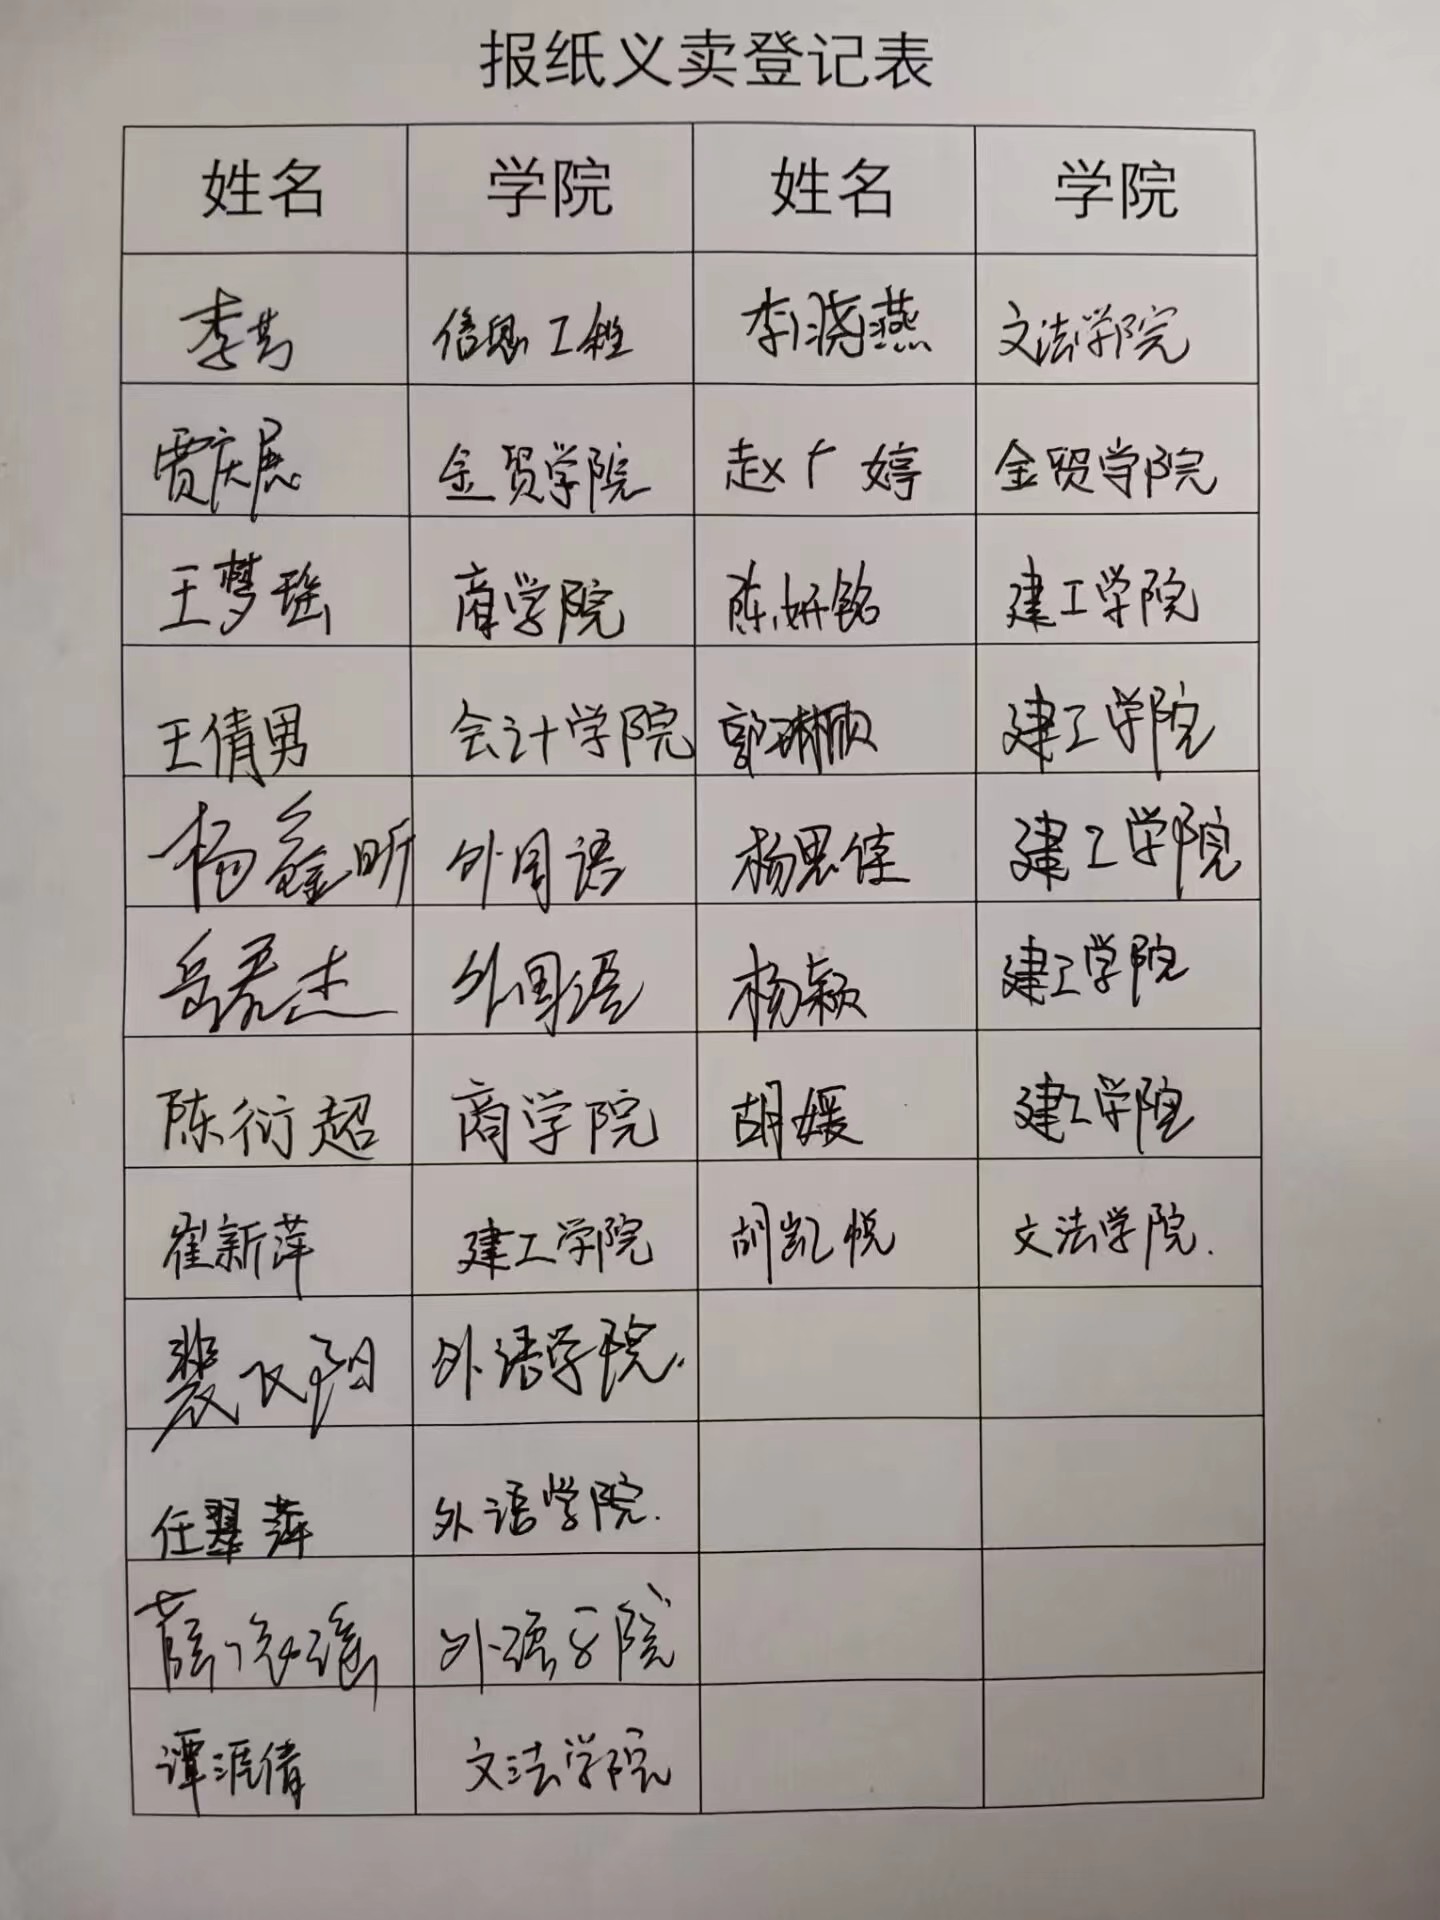 报纸义卖登记表
姓名 学院 姓名 学院
李芳 信息工程 李晓燕 文法学院
贾庆展 金贸学院 赵广婷 金贸学院
王梦瑶 商学院 陈妍铭 建工学院
王倩男 会计学院 郭琳欣 建工学院
杨鑫昕 外国语 杨思佳 建工学院
岳君杰 外国语 杨颖 建工学院
陈衍超 商学院 胡媛 建工学院
崔新萍 建工学院 胡凯悦 文法学院.
裴文阳 外语学院.
任翠萍 外语学院.
薛 瑶 外语学院
谭涯倩 文法学院